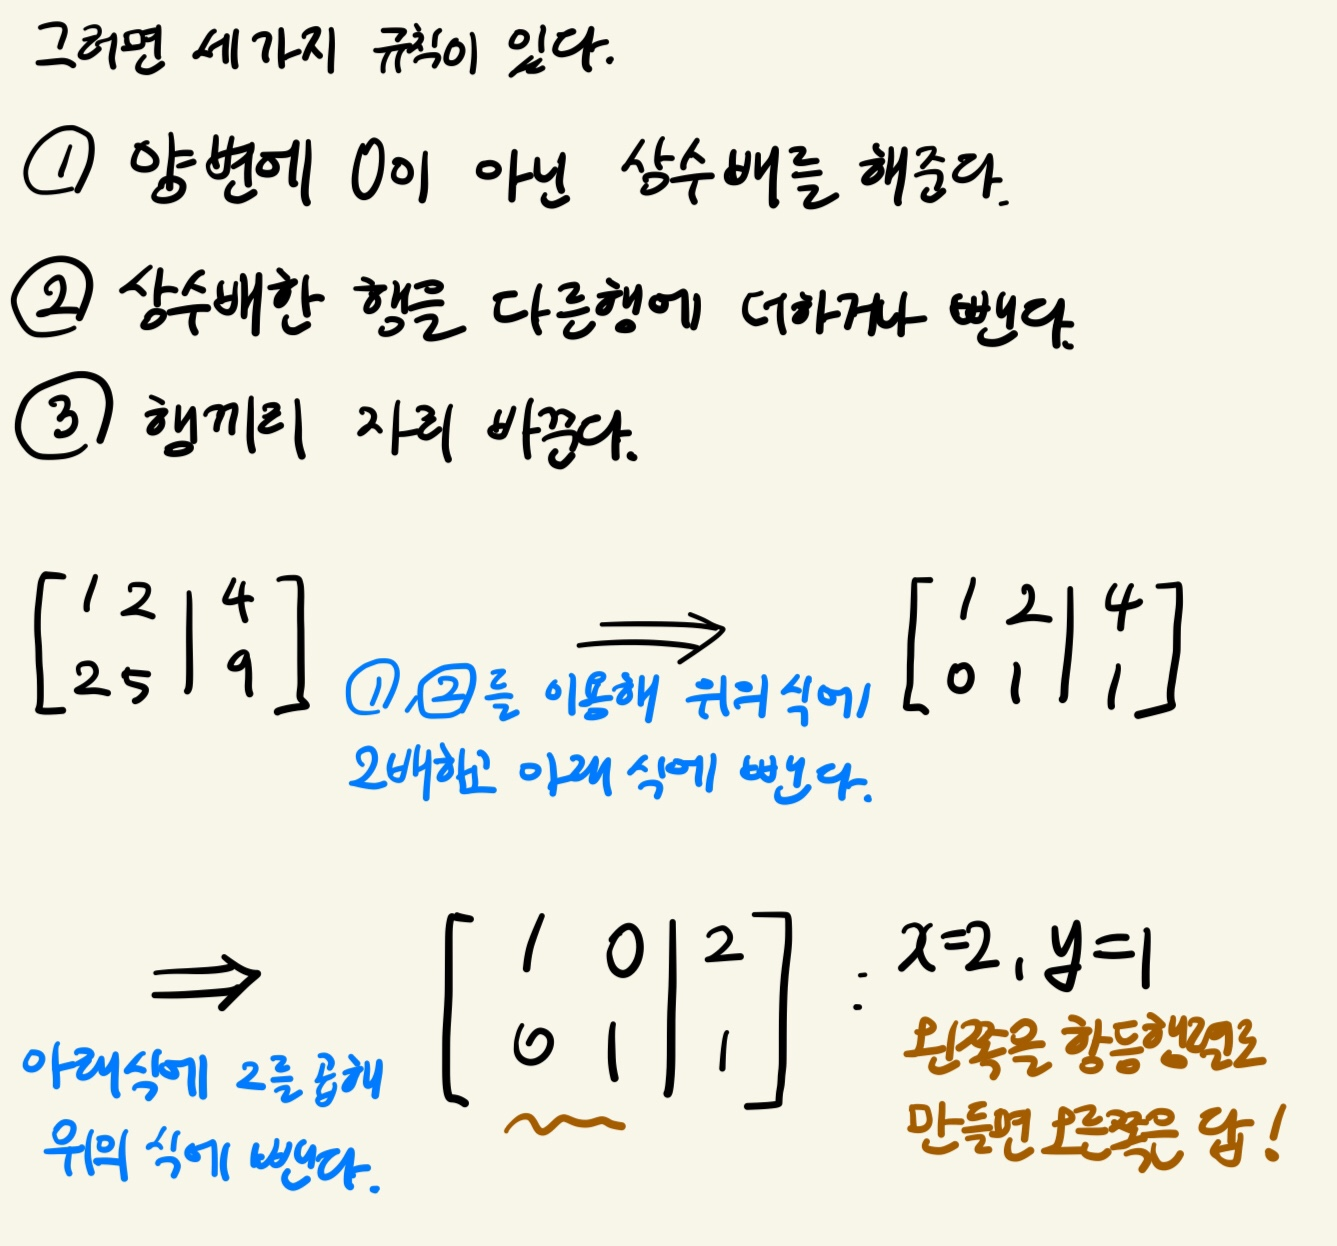 그러면 세가지 규칙이 있다.
① 양변에 0이 아닌 상수배를 해준다.
② 상수배한 행을 다른행에 더하거나 뺀다.
③ 행끼리 자리 바꾼다.
[1 2 | 4] ⇒ [1 2 | 4]
[2 5 | 9] [0 1 | 1]
①,②를 이용해 위의 식에
2배하고 아래 식에 뺀다.
⇒ [1 0 | 2] : x=2, y=1
[0 1 | 1]
아래식에 2를 곱해
위의 식에 뺀다.
왼쪽을 항등행렬로
만들면 오른쪽은 답!